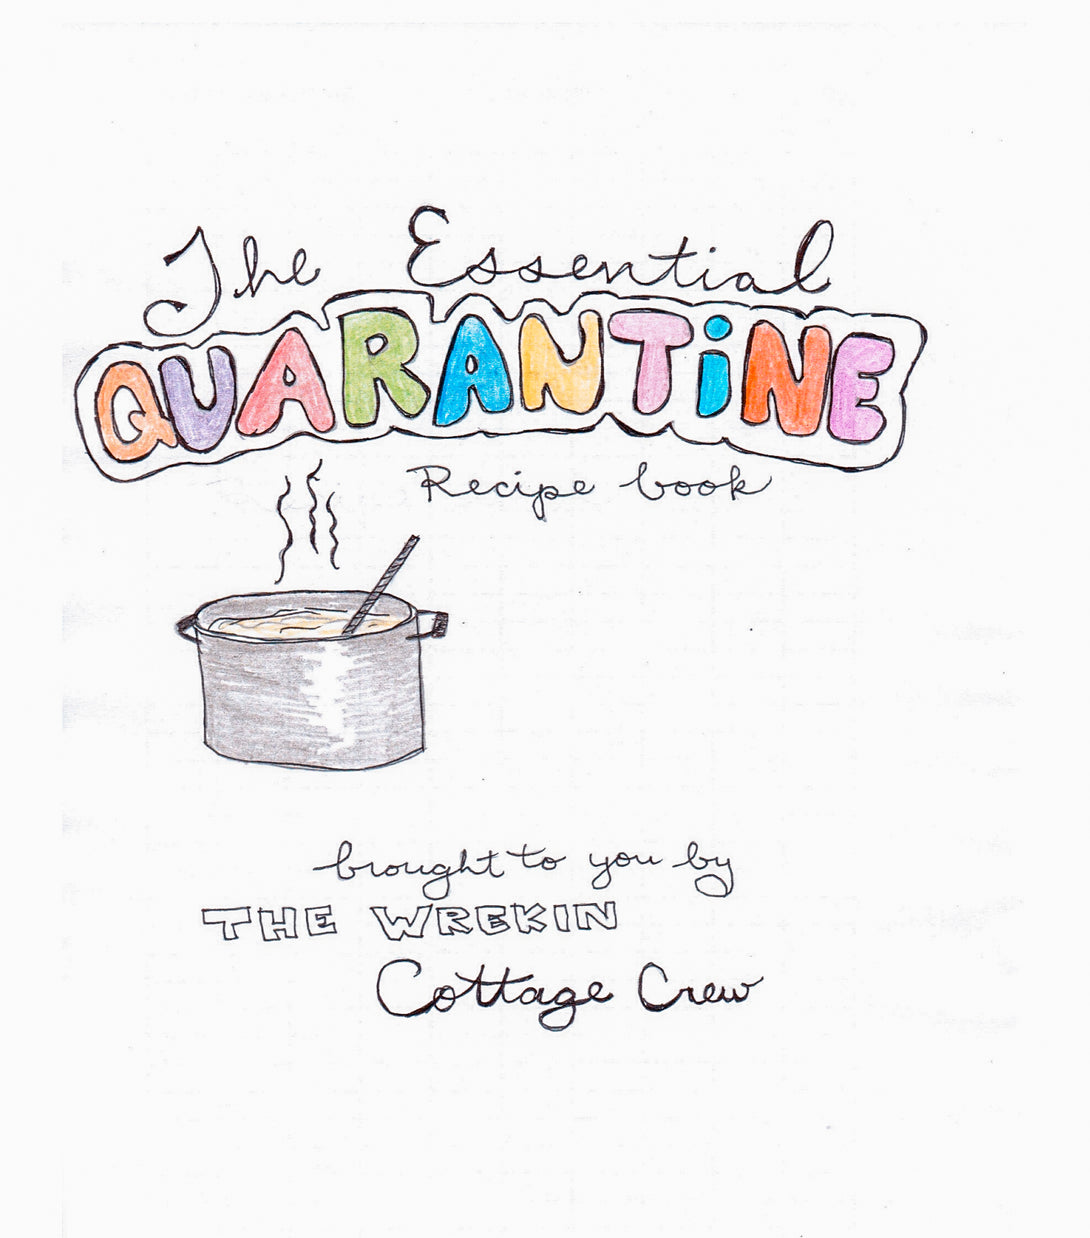 The Essential
QUARANTiNE
Recipe book
brought to you by
THE WREKIN
Cottage Crew